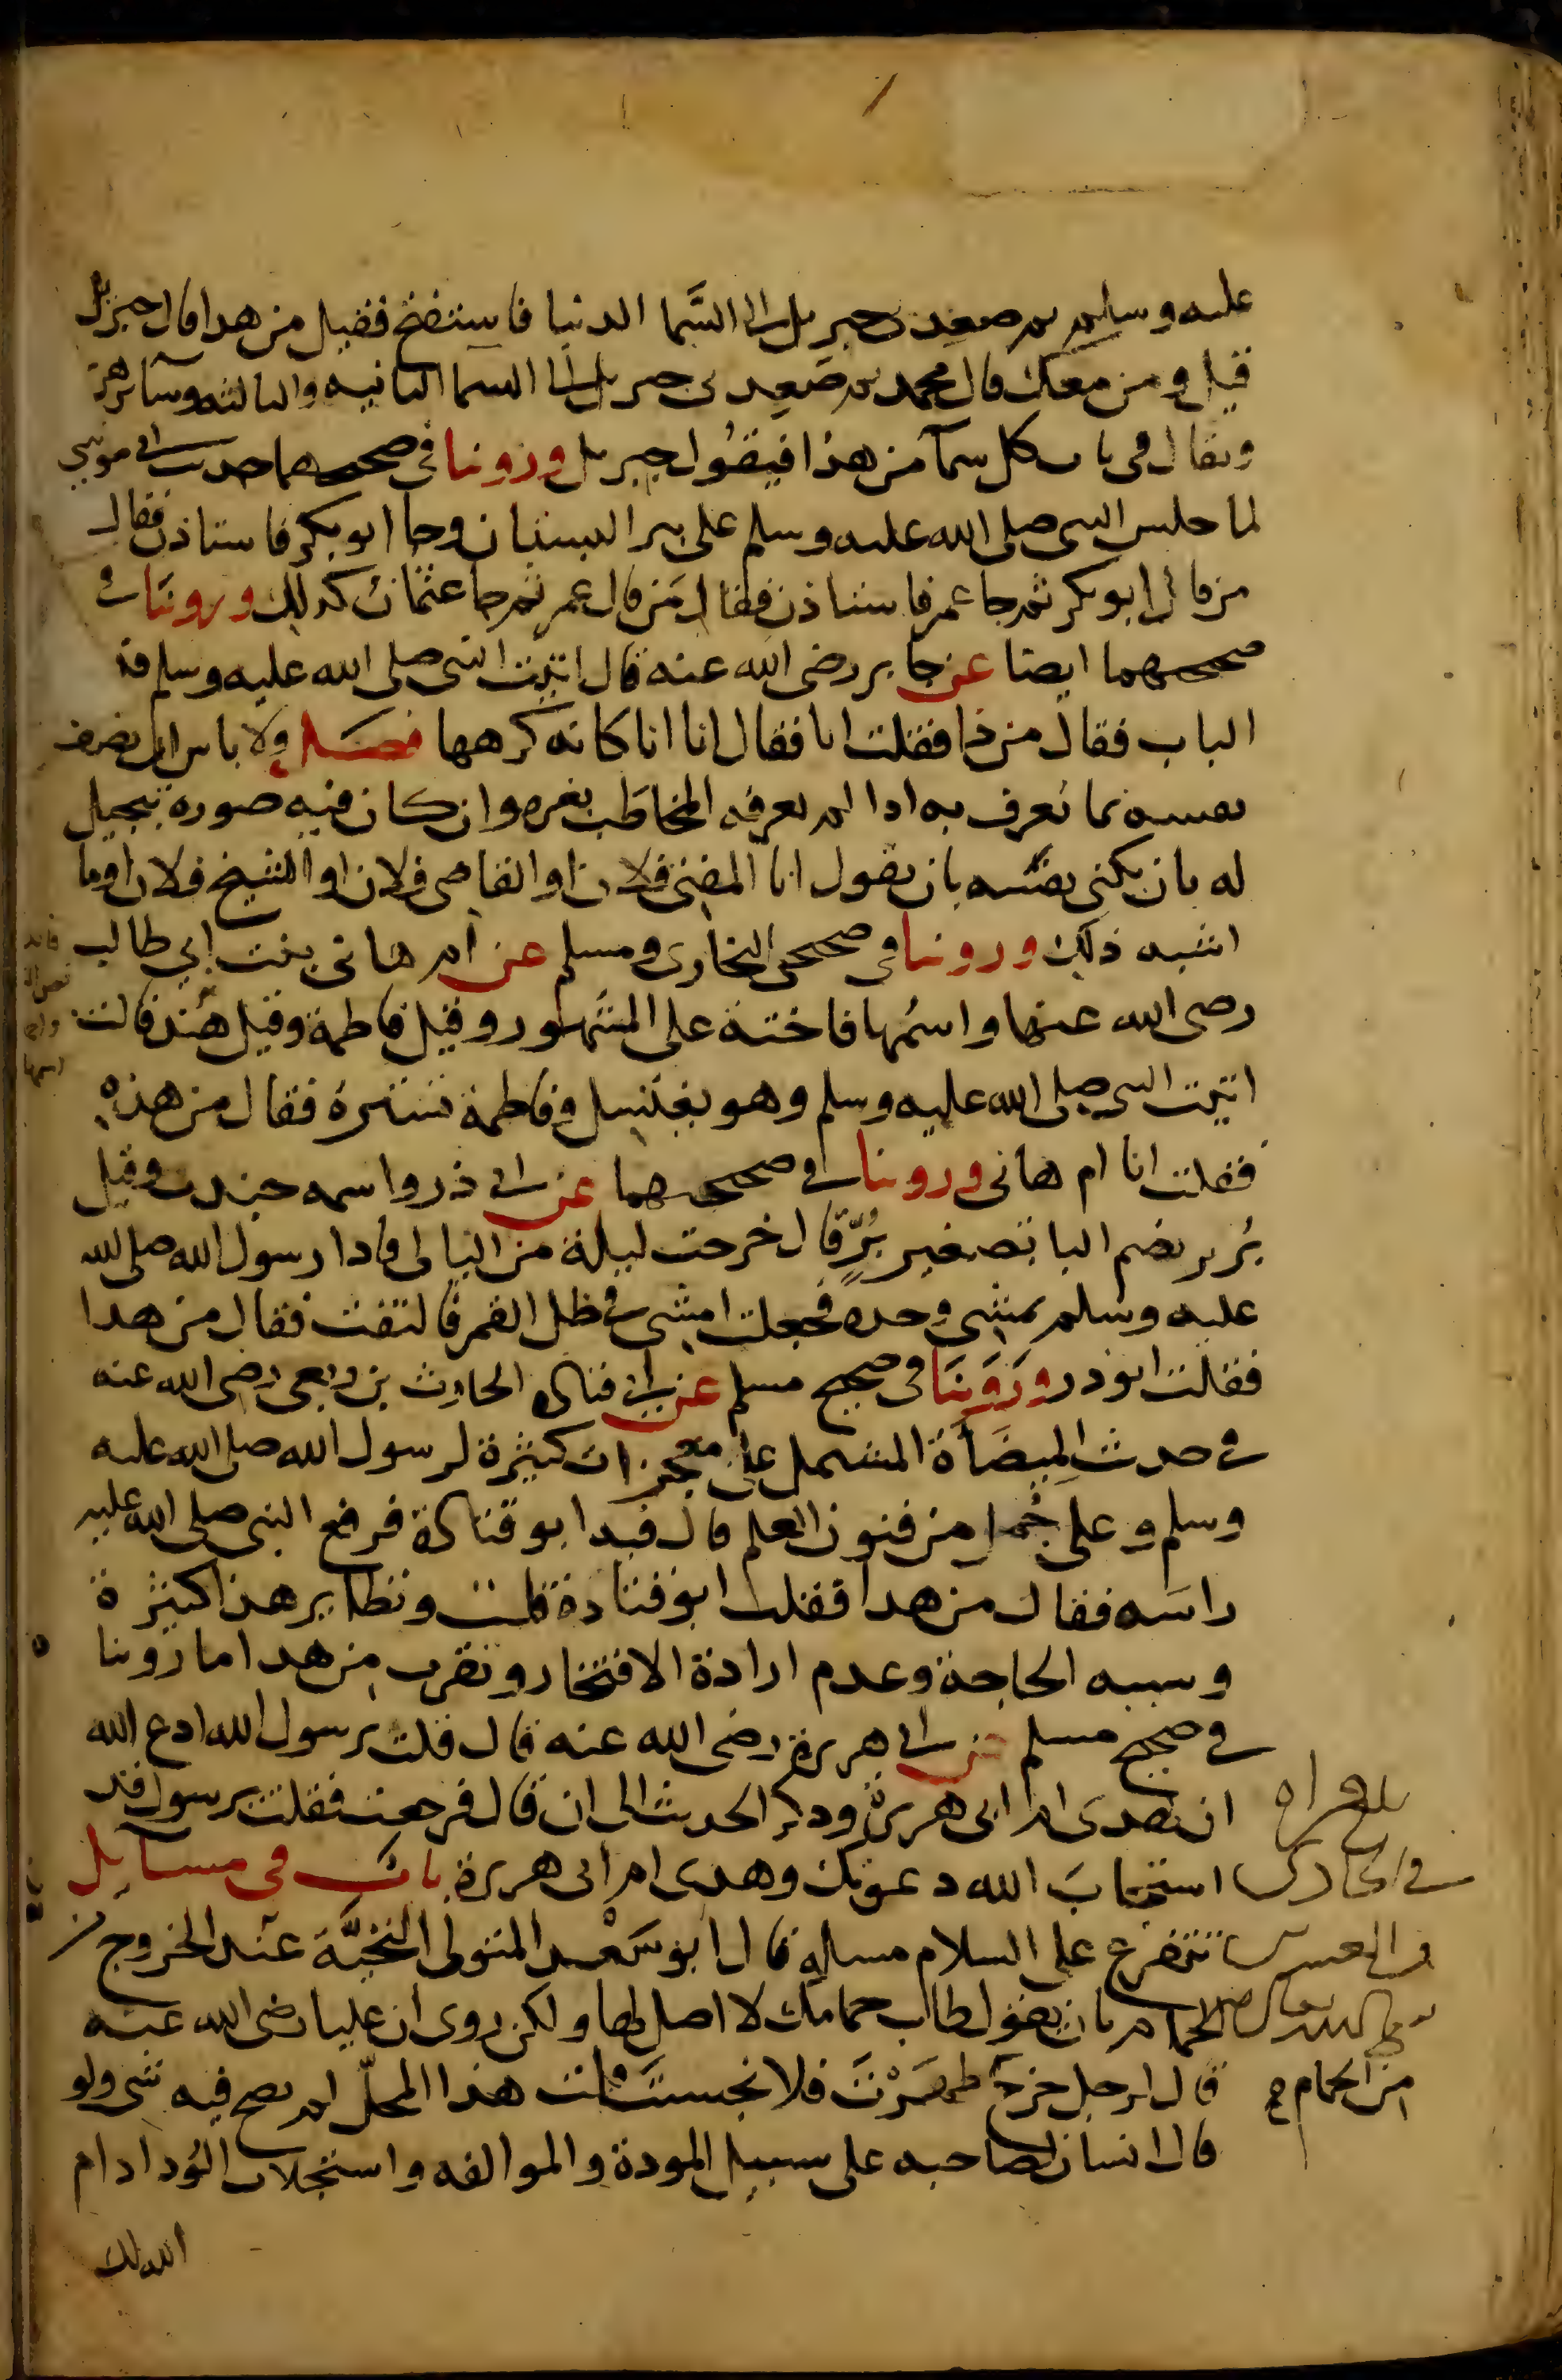 عليه وسلم ثم صعد بي جبريل الى السَّما الدنيا فاستفتح فقيل من هذا قال جبريل
قيل ومن معك قال محمد ثم صَعِد بي جبريل الى السما الثانيه والثالثه وسآئرهن
ويقال في باب كل سمآ من هذا فيقُول جبريل وروينا في صحيحيهما حديث ابي موسي
لما جلس النبي صلى الله عليه وسلم على بير البستان وجا ابو بكر فاستاذن فقال
من قال ابو بكر ثم جا عمر فاستاذن فقال مَن قال عمر ثم جا عثمان كذلك وروينَا في
صحيحيهما ايضا عن جابر رضى الله عنه قال اتيت النبي صلى الله عليه وسلم فد
الباب فقال من ذا فقلت انا فقال انا انا كانه كرهها فصَل ولا باس ان يصرف
نفسه بما يُعرف به اذا لم يعرفه المخاطَب بغيره وان كان فيه صورة تبجيل
له بان يكنى نفسه بان يقول انا المفتى فلان او القاضى فلان او الشيخ فلان او ما
اشبه ذلك وروينا في صحيحى البخارى ومسلم عن ام هانى بنت ابي طالب
رضى الله عنها واسمُها فاختة على المشَهور وقيل فاطمة وقيل هند قالت
اتيت النبي صلى الله عليه وسلم وهو يغتسل وفاطمة تستره فقال من هذه
فقلت انا ام هانى وروينا في صحيحيهما عن ابي ذر واسمه جندب وقيل
بُرير بضم البا تصغير بُرٍّ قال خرجت ليلة من الليالى فاذا رسول الله صلى الله
عليه وسلم يمشى وحده فجعلت امشى في ظل القمر فالتفت فقال من هذا
فقلت ابو ذر ورَوَينَا في صحيح مسلم عن ابي قتادة الحارث بن ربعى رضى الله عنه
في حديث المِيضَأة المشتمل على معجزات كثيرة لرسول الله صلى الله عليه
وسلم وعلى جُمل من فنون العلم قال فيه ابو قتادة فرفع النبى صلى الله عليه
راسَه فقال من هذا فقلت ابو قتادة قلت ونظاير هذا كثيرة
وسببه الحاجة وعدم ارادة الافتخار ويقرب من هذا ما رَوينا
في صحيح مسلم عن ابي هريرة رضى الله عنه قال قلت يرسول الله ادع الله
ان يهدى ام ابى هريرة وذكر الحديث الى ان قال فرجعت فقلت يرسول قد
استجابَ الله دعوتك وهدى ام ابى هريرة بابُ في مسآيل
تتفرع على السلام مسالة قال ابو سَعْد المتولى التحيَّة عند الخروج من
الحمام بان يقول طاب حمامك لا اصل لها ولكن روى ان عليا رضى الله عنه
قال لرجل خرج طهرْتَ فلا نجستَ قلت هذا المحلّ لم يصح فيه شى ولو
قال انسان لصاحبه على سبيل المودة والموالفه واستجلاب الوُد ادام
الله لك
من الحمام